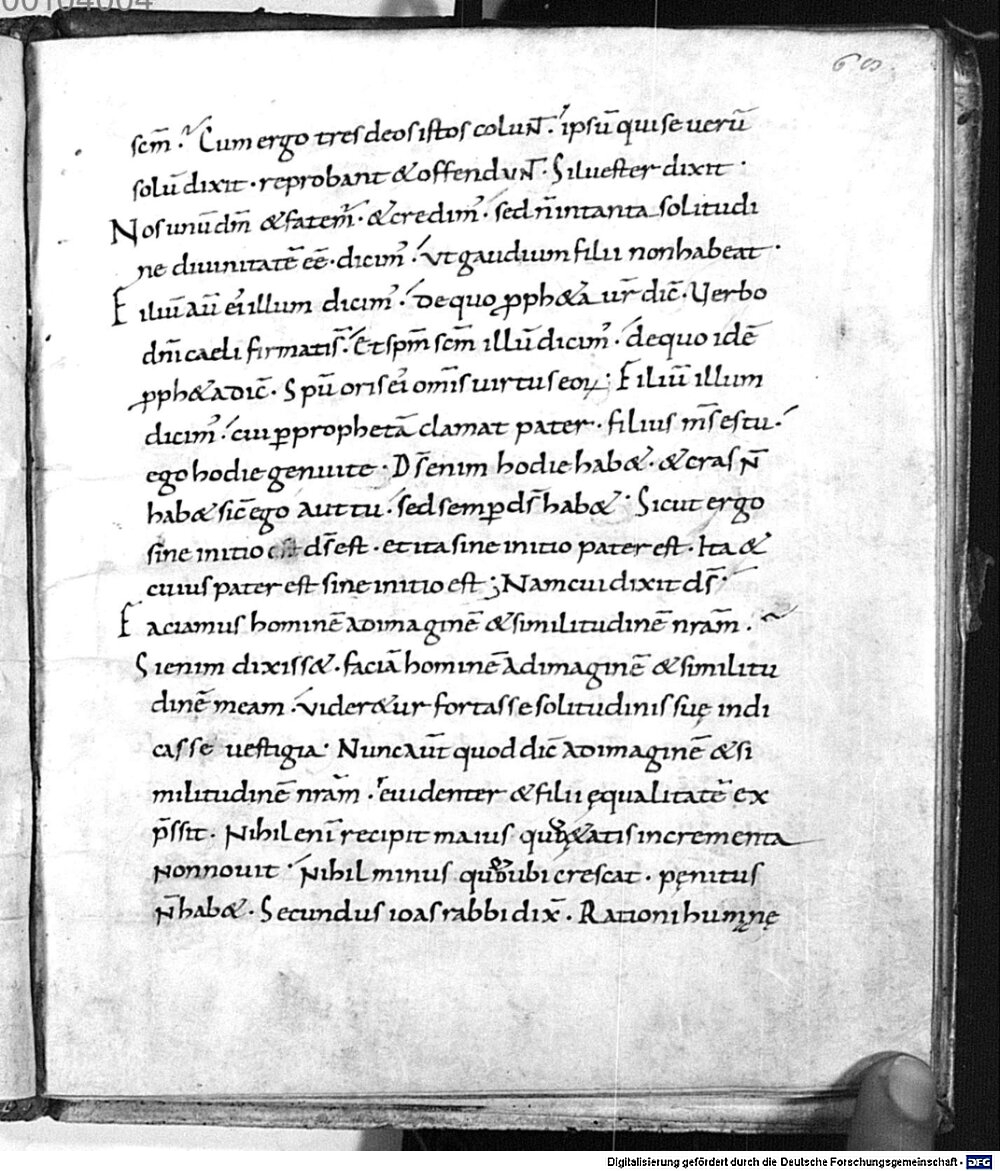 00104004
60
scm̄. Cum ergo tres deos istos colunt. ipsū qui se uerū
solū dixit. reprobant & offendunt. Siluester dixit.
Nos unū dm̄ & fatem̓. & credim̓. sed n̄ in tanta solitudi
ne diuinitatē eē. dicim̓. ut gaudium filii non habeat.
Filiū aū ei illum dicim̓. de quo ꝓph&a ur̄ dic̄. Uerbo
dni caeli firmati s̄. Et spm̄ scm̄ illū dicim̓. de quo idē
ꝓph&a dic̄. Spū oris ei om̄is uirtus eoꝝ. Filiū illum
dicim̓. cui ꝑ prophetā clamat pater. filius ms̄ es tu.
ego hodie genui te. Ds̄ enim hodie hab&. & cras n̄
hab& sic̄ ego aut tu. sed semꝑ ds̄ hab&. Sicut ergo
sine initio ds̄ est. et ita sine initio pater est. Ita &
cuius pater est sine initio est; Nam cui dixit ds̄.
Faciamus hominē ad imaginē & similitudinē nrām.
Si enim dixiss&. faciā hominē ad imaginē & similitu
dinē meam. uider&ur fortasse solitudinis suę indi
casse uestigia. Nunc aūt quod dic̄ ad imaginē & si
militudinē nrām. euidenter & filii ęqualitatē ex
p̄ssit. Nihil enī recipit maius &atis incrementa
non nouit. Nihil minus ubi crescat. pęnitus
n̄ hab&. Secundus ioas rabbi dix̄. Rationi humanę
Digitalisierung gefördert durch die Deutsche Forschungsgemeinschaft - DFG